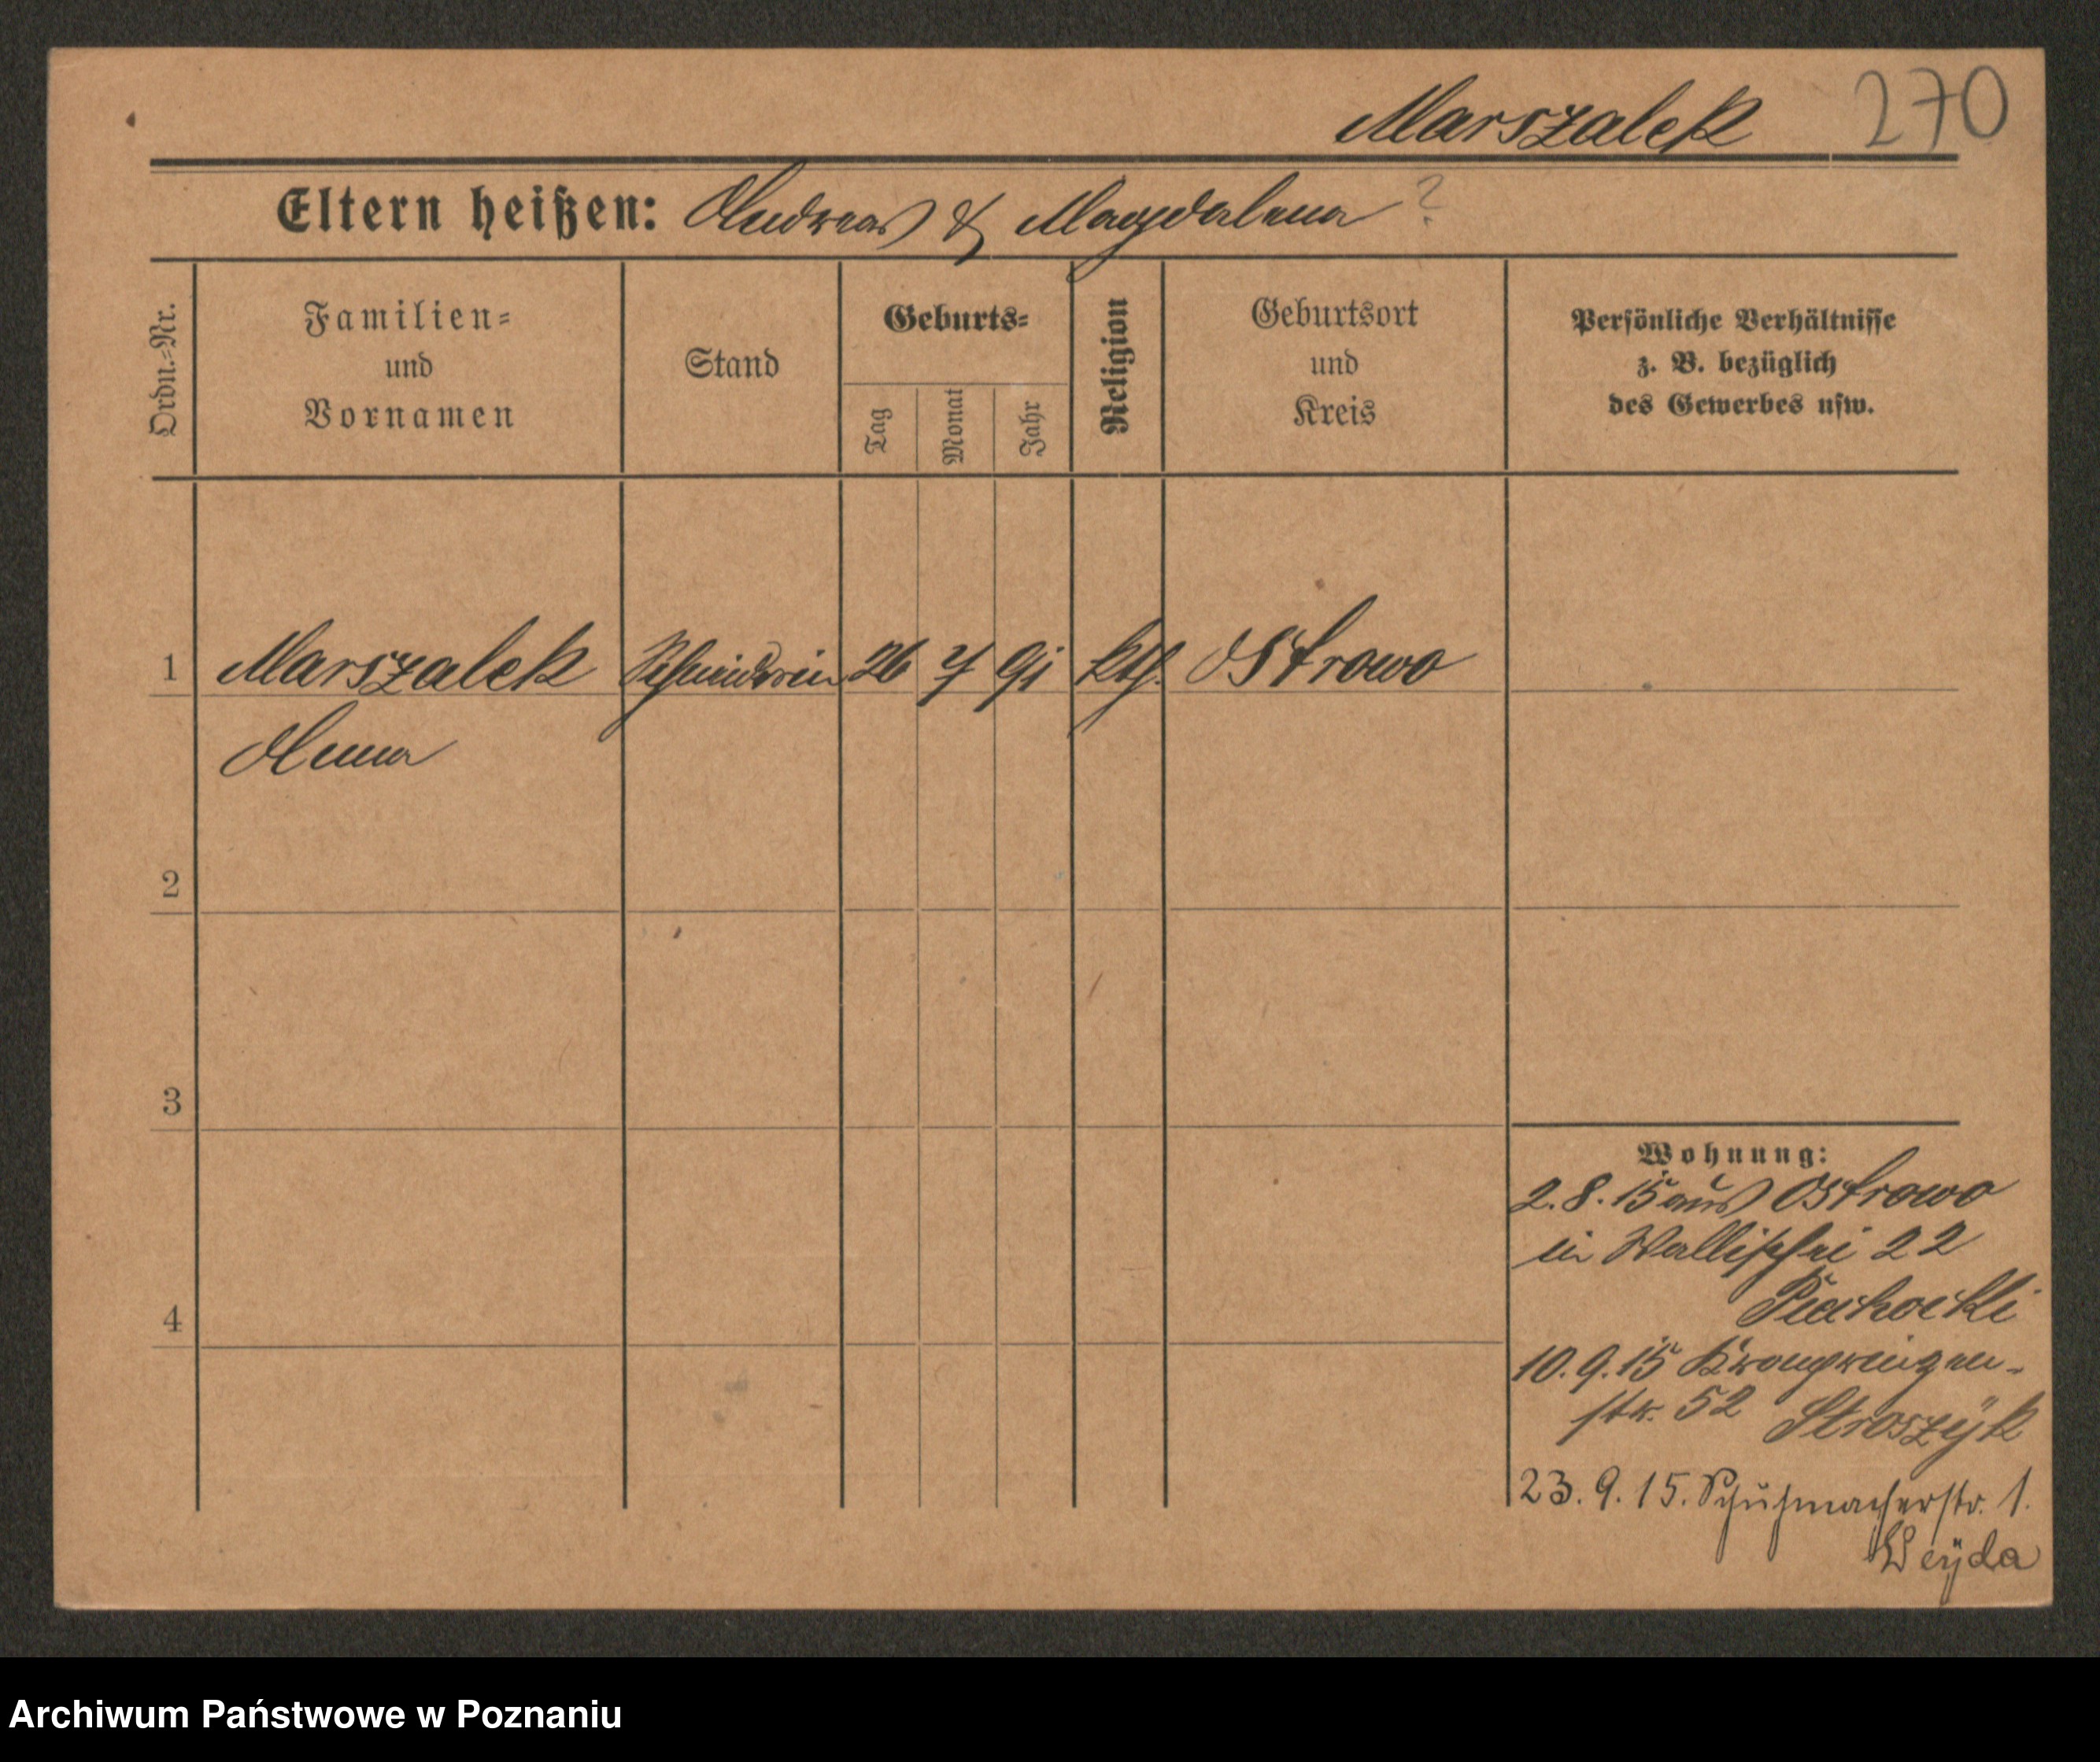 Marszalek 270
Eltern heißen: Andreas & Magdalena ?
Ordn.-Nr.
Familien- und Vornamen
Stand
Geburts-
Tag
Monat
Jahr
Religion
Geburtsort und Kreis
Persönliche Verhältnisse z. B. bezüglich des Gewerbes usw.
1 Marszalek Schneiderin 26 7 91 kth. Ostrowo
Anna
2
3
4
Wohnung:
2. 8. 15 aus Ostrowo
in Wallischei 22
Piechocki
10. 9. 15 Kronprinzen-
str. 52 Stroszÿk
23. 9. 15. Schuhmacherstr. 1.
Weÿda
Archiwum Państwowe w Poznaniu